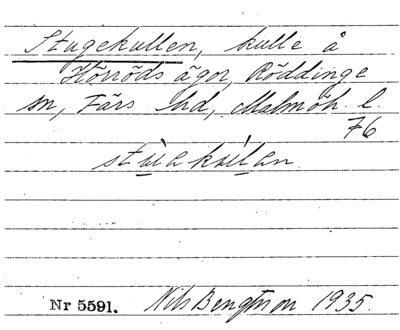 Stugekullen, kulle å
Hörröds ägor, Röddinge
sn, Färs hd, Malmöh. l.
76
Nr 5591. Nils Bengtsson 1935.